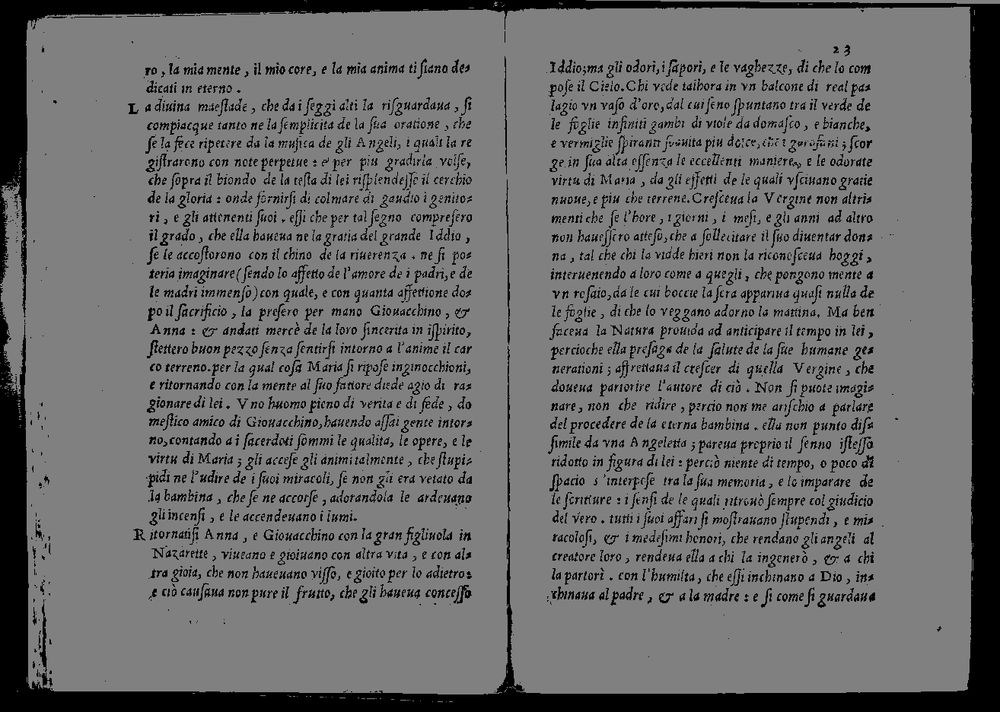 ro, la mia mente, il mio core, e la mia anima ti ſiano de-
dicati in eterno.
La diuina maeſtade, che da i ſeggi alti la riſguardaua, ſi
compiacque tanto ne la ſemplicita de la ſua oratione, che
ſe la fece ripetere da la muſica de gli Angeli, i quali la re
giſtrarono con note perpetue: e per piu gradirla volſe,
che ſopra il biondo de la teſta di lei riſplendeſſe il cerchio
de la gloria: onde fornirſi di colmare di gaudio i genito-
ri, e gli attenenti ſuoi. eſſi che per tal ſegno compreſero
il grado, che ella haueua ne la gratia del grande Iddio,
ſe le accoſtorono con il chino de la riuerenza. ne ſi po-
teria imaginare (ſendo lo affetto de l'amore de i padri, e de
le madri immenſo) con quale, e con quanta affettione do-
po il ſacrificio, la preſero per mano Giouacchino, &
Anna: & andati mercè de la loro ſincerita in iſpirito,
ſtettero buon pezzo ſenza ſentirſi intorno a l'anime il car
co terreno. per la qual coſa Maria ſi ripoſe inginocchioni,
e ritornando con la mente al ſuo fattore diede agio di ra-
gionare di lei. Vno huomo pieno di verita e di fede, do
meſtico amico di Giouacchino, hauendo aſſai gente intor-
no, contando a i ſacerdoti ſommi le qualita, le opere, e le
virtu di Maria; gli acceſe gli animi talmente, che ſtupi-
pidi ne l'udire de i ſuoi miracoli, ſe non gli era vetato da
la bambina, che ſe ne accorſe, adorandola le ardeuano
gli incenſi, e le accendeuano i lumi.
Ritornatiſi Anna, e Giouacchino con la gran figliuola in
Nazarette, viueano e gioiuano con altra vita, e con al-
tra gioia, che non haueuano viſſo, e gioito per lo adietro:
e ciò cauſaua non pure il frutto, che gli haueua conceſſo
23
Iddio; ma gli odori, i ſapori, e le vaghezze, di che lo com
poſe il Cielo. Chi vede talhora in vn balcone di real pa-
lagio vn vaſo d'oro, dal cui ſeno ſpuntano tra il verde de
le foglie infiniti gambi di viole da domaſco, e bianche,
e vermiglie ſpiranti ſouuita piu dolce, che i garofani; ſcor
ge in ſua alta eſſenza le eccellenti maniere, e le odorate
virtu di Maria, da gli effetti de le quali vſciuano gratie
nuoue, e piu che terrene. Creſceua la Vergine non altri-
menti che ſe l'hore, i giorni, i meſi, e gli anni ad altro
non haueſſero atteſo, che a ſollecitare il ſuo diuentar don-
na, tal che chi la vidde hieri non la riconoſceua hoggi,
interuenendo a loro come a quegli, che pongono mente a
vn roſaio, da le cui boccie la ſera appariua quaſi nulla de
le foglie, di che lo veggano adorno la mattina. Ma ben
faceua la Natura prouida ad anticipare il tempo in lei,
percioche ella preſaga de la ſalute de la ſue humane ge-
nerationi; affrettaua il creſcer di quella Vergine, che
doueua partorire l'autore di ciò. Non ſi puote imagi-
nare, non che ridire, percio non me ariſchio a parlare
del procedere de la eterna bambina. ella non punto diſſ
ſimile da vna Angeletta; pareua proprio il ſenno iſteſſo
ridotto in figura di lei: perciò niente di tempo, o poco di
ſpacio s'interpoſe tra la ſua memoria, e lo imparare de
le ſcritture: i ſenſi de le quali ritrouò ſempre col giudicio
del vero. tutti i ſuoi affari ſi moſtrauano ſtupendi, e mi-
racoloſi, & i medeſimi honori, che rendano gli angeli al
creatore loro, rendeua ella a chi la ingenerò, & a chi
la partorì. con l'humilta, che eſſi inchinano a Dio, in-
chinaua al padre, & a la madre: e ſi come ſi guardaua